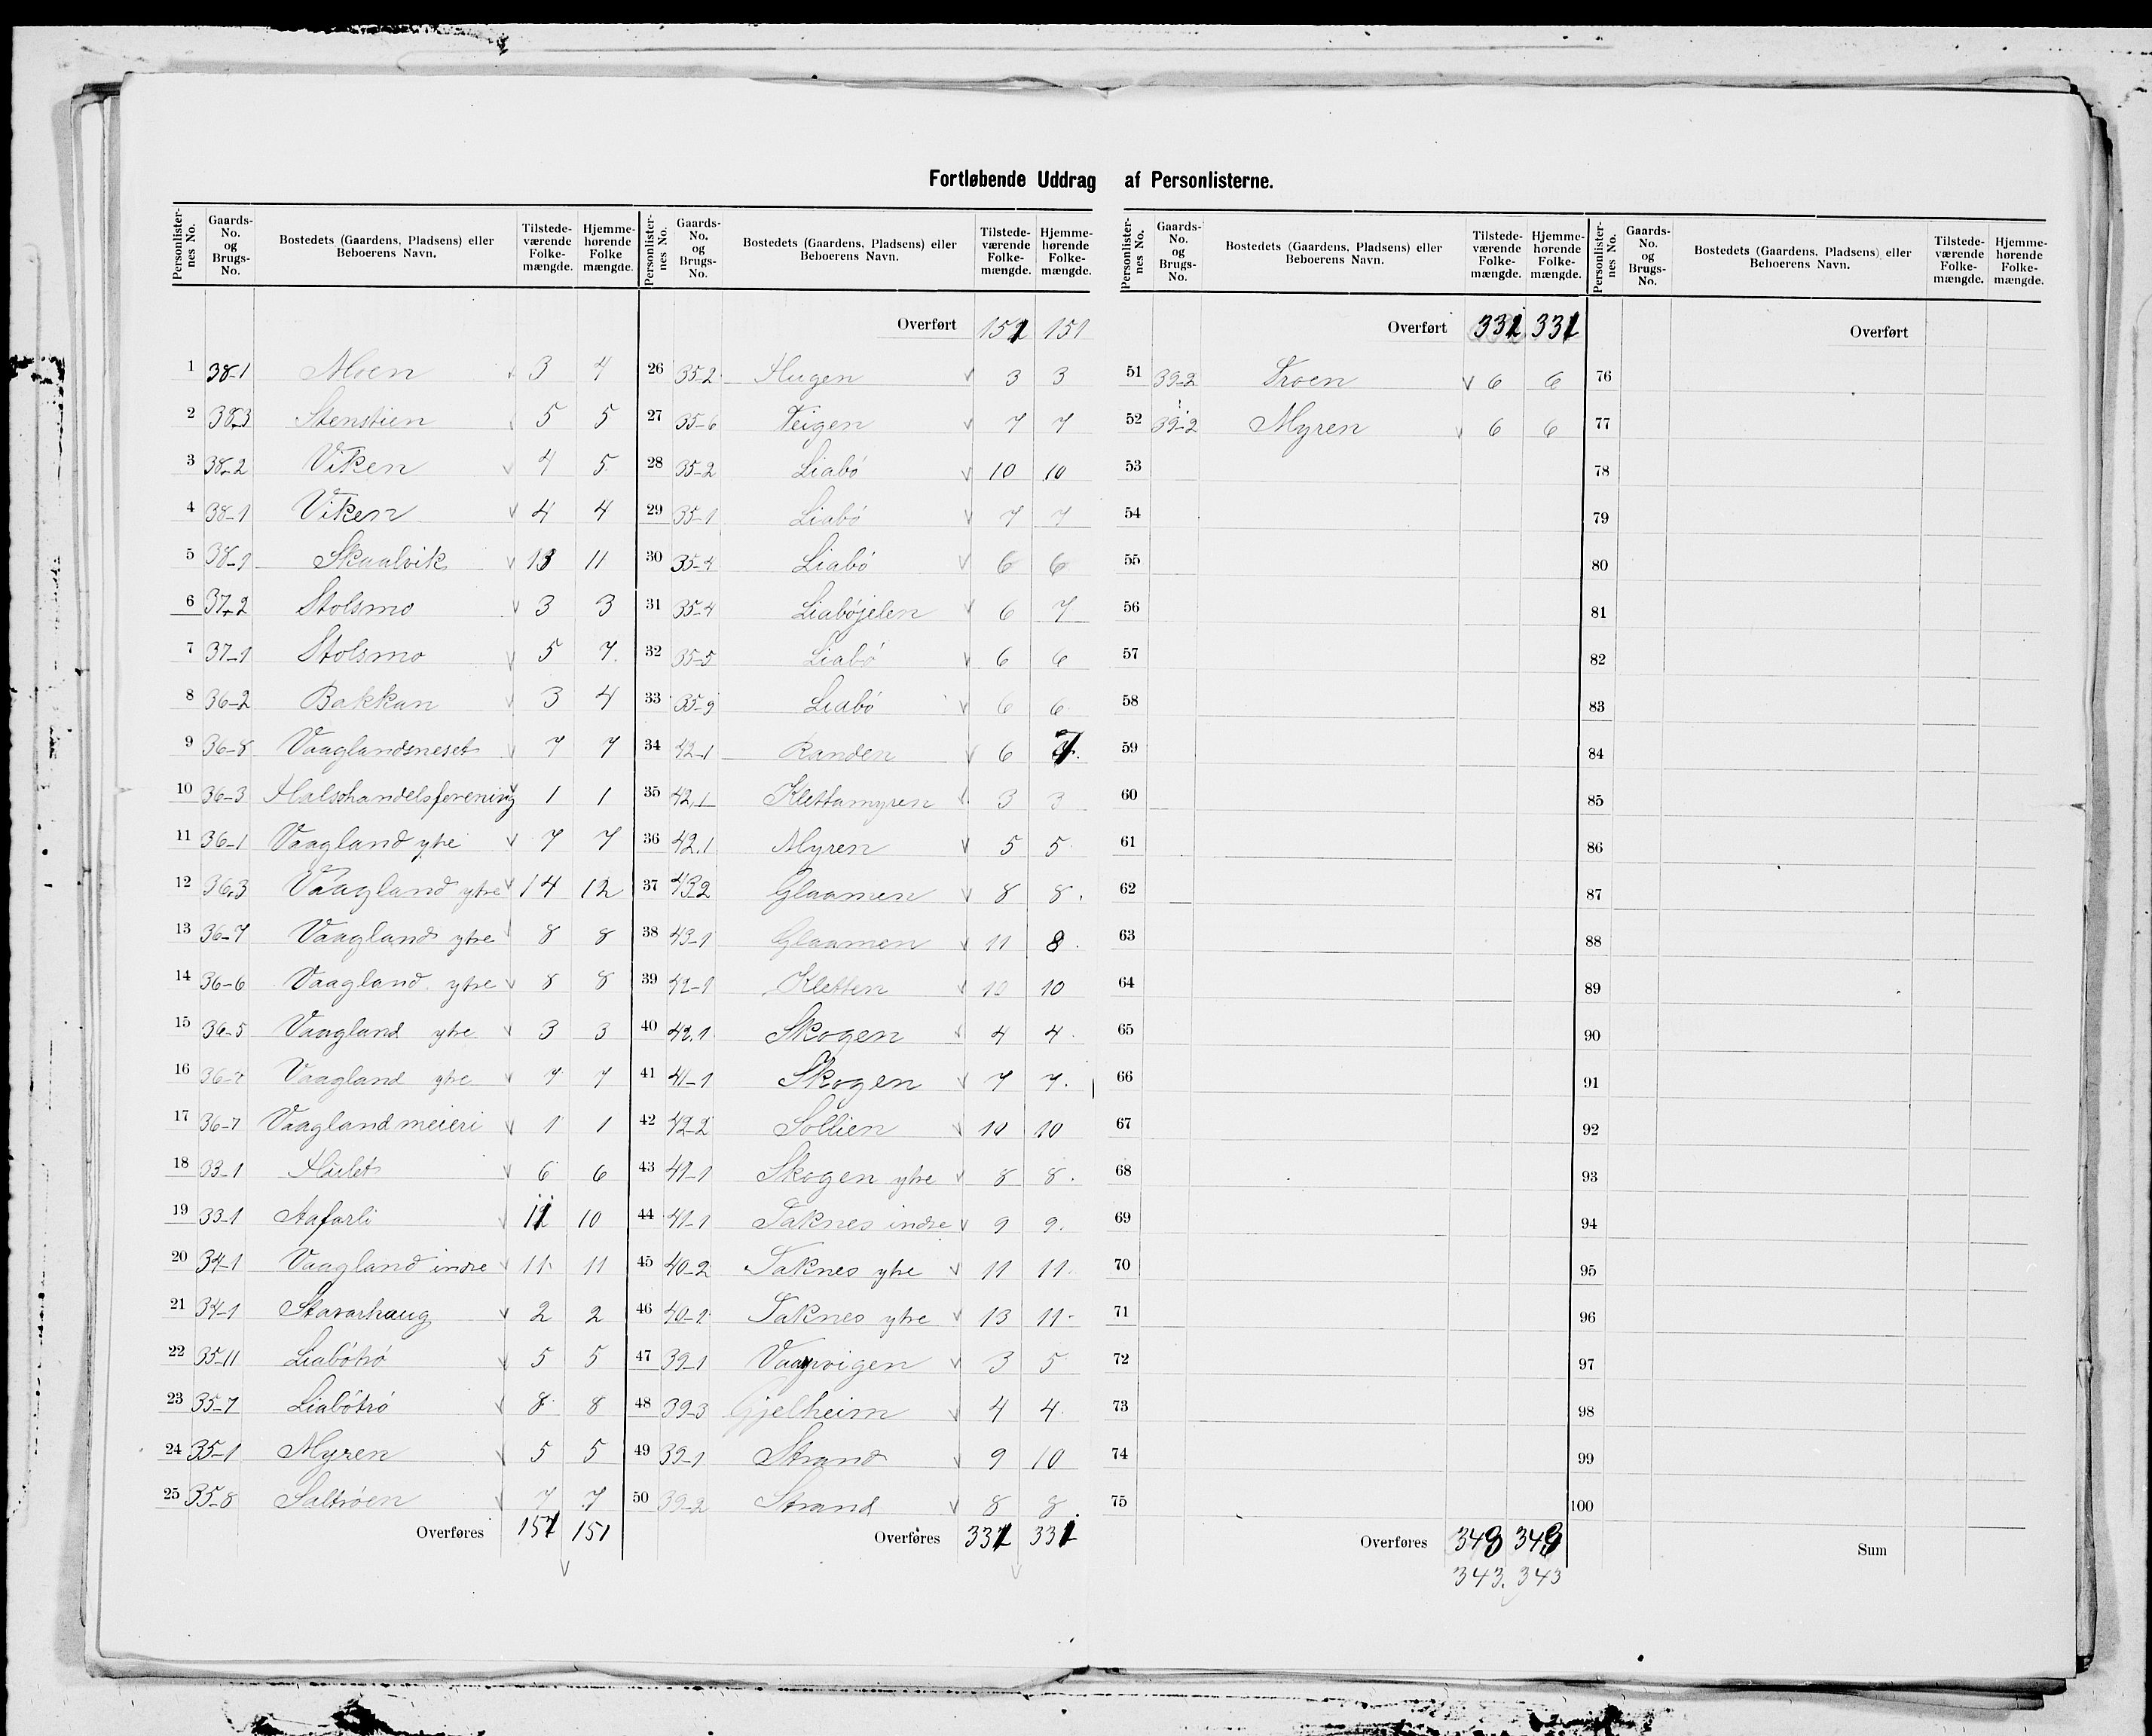 Fortløbende Uddrag af Personlisterne.
Personlister-nes No. | Gaards-No. og Brugs-No. | Bostedets (Gaardens, Pladsens) eller Beboerens Navn. | Tilstede-værende Folke-mængde. | Hjemme-hørende Folke mængde.
1 38-1 Moen v 3 4
2 38-3 Stenstien v 5 5
3 38-2 Viken v 4 5
4 38-1 Viken v 4 4
5 38-1 Skaalvik v 13 11
6 37-2 Stolsmo v 3 3
7 37-1 Stolsmo v 5 7
8 36-2 Bakkan v 3 4
9 36-8 Vaaglandsneset v 7 7
10 36-3 Halsohandelsforening v 1 1
11 36-1 Vaagland ytre v 7 7
12 36.3 Vaagland ytre v 14 12
13 36-7 Vaagland ytre v 8 8
14 36-6 Vaagland ytre v 8 8
15 36-5 Vaagland ytre v 3 3
16 36-2 Vaagland ytre v 7 7
17 36-7 Vaagland meieri v 1 1
18 33-1 Hulet v 6 6
19 33-1 Aafarli v 11 10
20 34-1 Vaagland indre v 11 11
21 34-1 Stavarhaug v 2 2
22 35-11 Liabötrö v 5 5
23 35-7 Liabötrö v 8 8
24 35-1 Myren v 5 5
25 35-8 Saltröen v 7 7
Overføres 151 151
Personlister-nes No. | Gaards-No. og Brugs-No. | Bostedets (Gaardens, Pladsens) eller Beboerens Navn. | Tilstede-værende Folke-mængde. | Hjemme-hørende Folke-mængde.
Overført 151 151
26 35-2 Hugen v 3 3
27 35-6 Teigen v 7 7
28 35-2 Liabö v 10 10
29 35-1 Liabö v 7 7
30 35-4 Liabö v 6 6
31 35-4 Liaböjelen v 6 7
32 35-5 Liabö v 6 6
33 35-9 Liabö v 6 6
34 42-1 Randen v 6 7.
35 42.1 Klettamyren v 3 3
36 42.1 Myren v 5 5
37 43-2 Glaamen v 8 8.
38 43-1 Glaamen v 11 8.
39 42-1 Kletten v 10 10
40 42.1 Skogen v 4 4
41 41-1 Skogen v 7 7.
42 42-2 Sollien v 10 10
43 41-1 Skogen ytre v 8 8.
44 41-1 Taknes indre v 9 9.
45 40-2 Taknes ytre v 11 11
46 40-1 Taknes ytre v 13 11-
47 39-1 Vaagvigen v 3 5
48 39-3 Gjelheim v 4 4
49 39-1 Strand v 9 10
50 39-2 Strand v 8 8.
Overføres 331 331
Personlister-nes No. | Gaards-No. og Brugs-No. | Bostedets (Gaardens, Pladsens) eller Beboerens Navn. | Tilstede-værende Folke-mængde. | Hjemme-hørende Folke-mængde.
Overført 331 331
51 39-2 Troen v 6 6
52 39-2 Myren v 6 6
53
54
55
56
57
58
59
60
61
62
63
64
65
66
67
68
69
70
71
72
73
74
75
Overføres 343 343
343. 343
Personlister-nes No. | Gaards-No. og Brugs-No. | Bostedets (Gaardens, Pladsens) eller Beboerens Navn. | Tilstede-værende Folke-mængde. | Hjemme-hørende Folke-mængde.
Overført
76
77
78
79
80
81
82
83
84
85
86
87
88
89
90
91
92
93
94
95
96
97
98
99
100
Sum